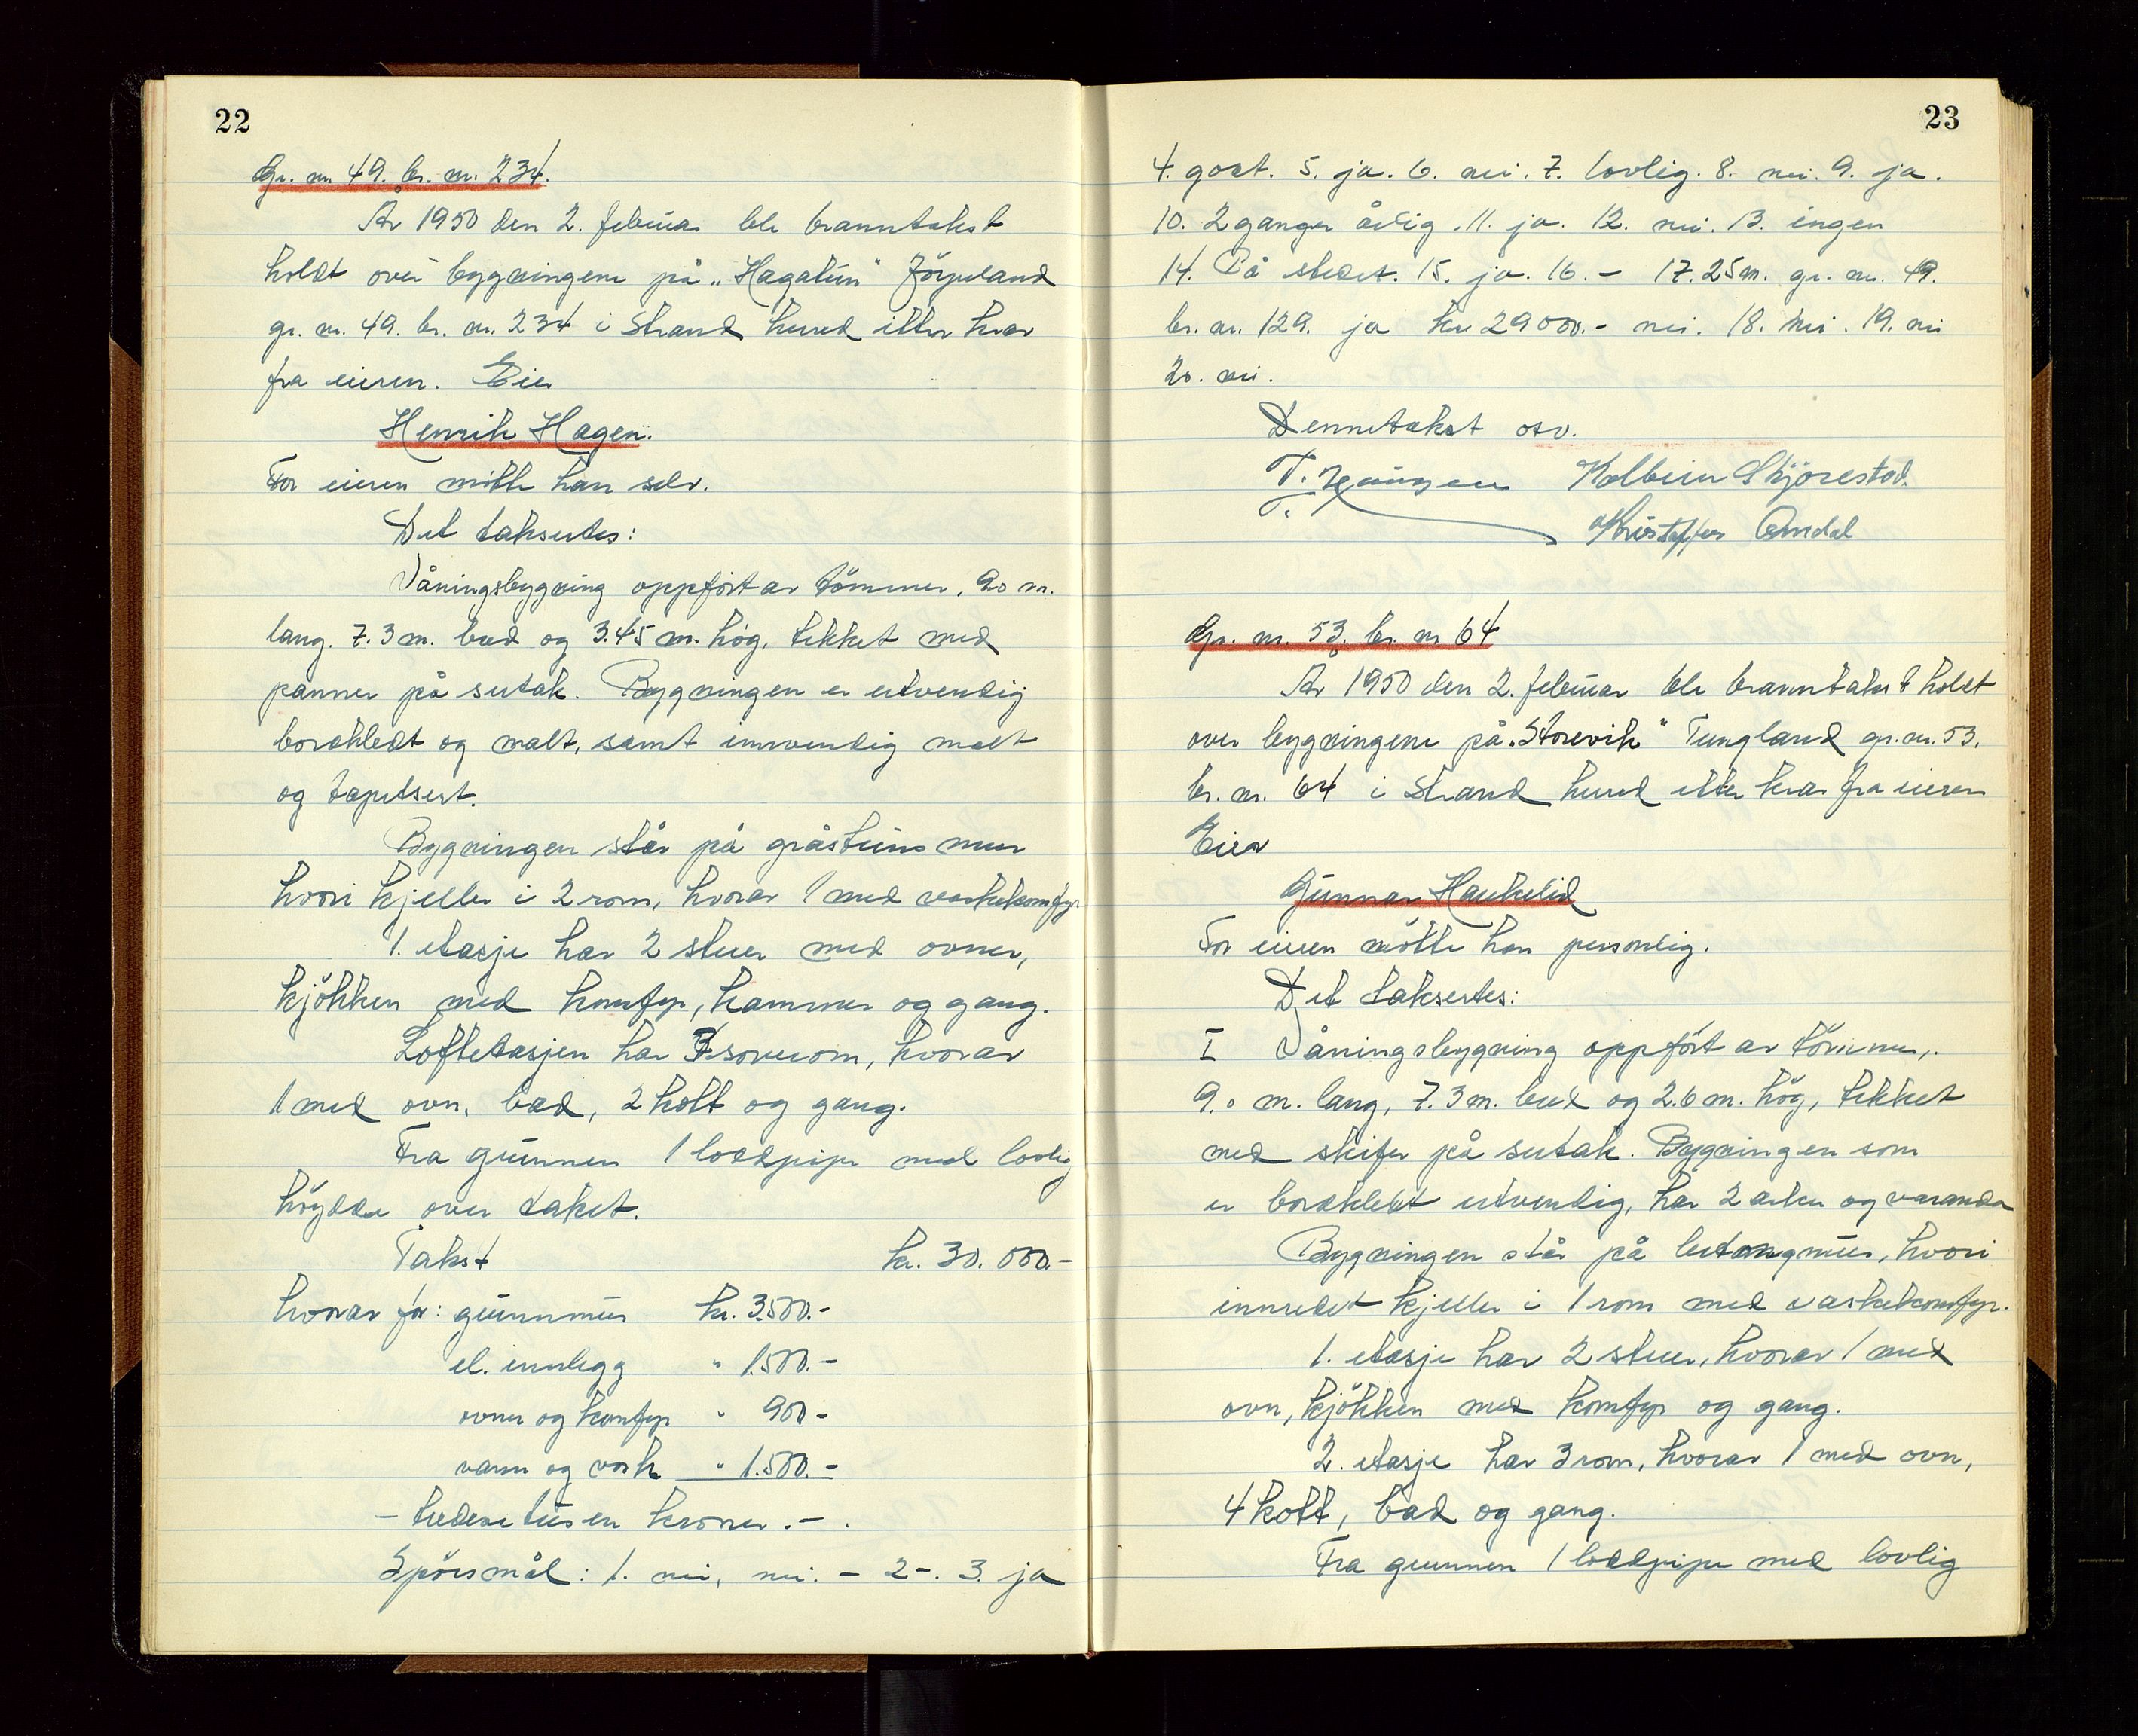 22
Gr. nr. 49. br. nr. 234.
År 1950 den 2. februar ble branntakst
holdt over bygningene på "Hagatun" Jörpeland
gr. nr. 49. br. nr. 234 i Strand herred etter krav
fra eieren. Eier
Henrik Hagen.
For eieren mötte han selv.
Det taksertes:
Våningsbygning oppfört av tömmer, 9.0 m.
lang. 7.3 m. bred og 3.45 m. hög, tekket med
panner på sutak. Bygningen er utvendig
bordkledt og malt, samt innvendig malt
og tapetsert.
Bygningen står på gråsteins mur
hvori kjeller i 2 rom, hvorav 1 med vaskekomfyr
1. etasje har 2 stuer med ovner,
kjökken med komfyr, kammer og gang.
Loftetasjen har 3 soverom, hvorav
1 med ovn, bad, 2 kott og gang.
Fra grunnen 1 loddpipe med lovlig
höyde over taket.
Takst kr. 30.000.-
hvorav for: grunnmur kr. 3.500.-
el. innlegg " 1.500.-
ovner og komfyr " 900 -
vann og vask " 1.500.-
- tredve tusen kroner. - .
Spörsmål: 1. nei, nei. - 2 -. 3. ja
23
4. godt. 5. ja. 6. nei. 7. lovlig. 8. nei. 9. ja.
10. 2 ganger årlig. 11. ja. 12. nei. 13. ingen
14. På stedet. 15. ja. 16. - 17. 25 m. gr. nr. 49.
br. nr. 129. ja kr 29000.- nei. 18. nei. 19. nei
20. nei.
Dennetakst osv.
Kolbein Skjörestad.
Kristoffer Omdal
Gr. nr. 53. br. nr 64
År 1950 den 2. februar ble branntakst holdt
over bygningene på "Storevik" Tungland gr. nr. 53.
br. nr. 64 i Strand herred etter krav fra eieren
Eier
Gunnar Haukelid
For eieren mötte han personlig.
Det taksertes:
I Våningsbygning oppfört av tömmer,.
9.0 m. lang, 7.3 m. bred og 2.6 m. hög, tekket
med skifer på sutak. Bygningen som
er bordkledt utvendig, har 2 arker og varanda
Bygningen står på betongmur, hvori
innredet kjeller i 1 rom med vaskekomfyr.
1. etasje har 2 stuer, hvorav 1 med
ovn, kjökken med komfyr og gang.
2. etasje har 3 rom, hvorav 1 med ovn,
4 kott, bad og gang.
Fra grunnen 1 loddpipe med lovlig